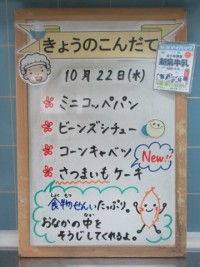 きょうのこんだて
10月22日(水)
ミニコッペパン
ビーンズシチュー
コーンキャベツ
New!!
さつまいもケーキ
食物せんいたっぷり
おなかの中を
そうじしてくれるよ。